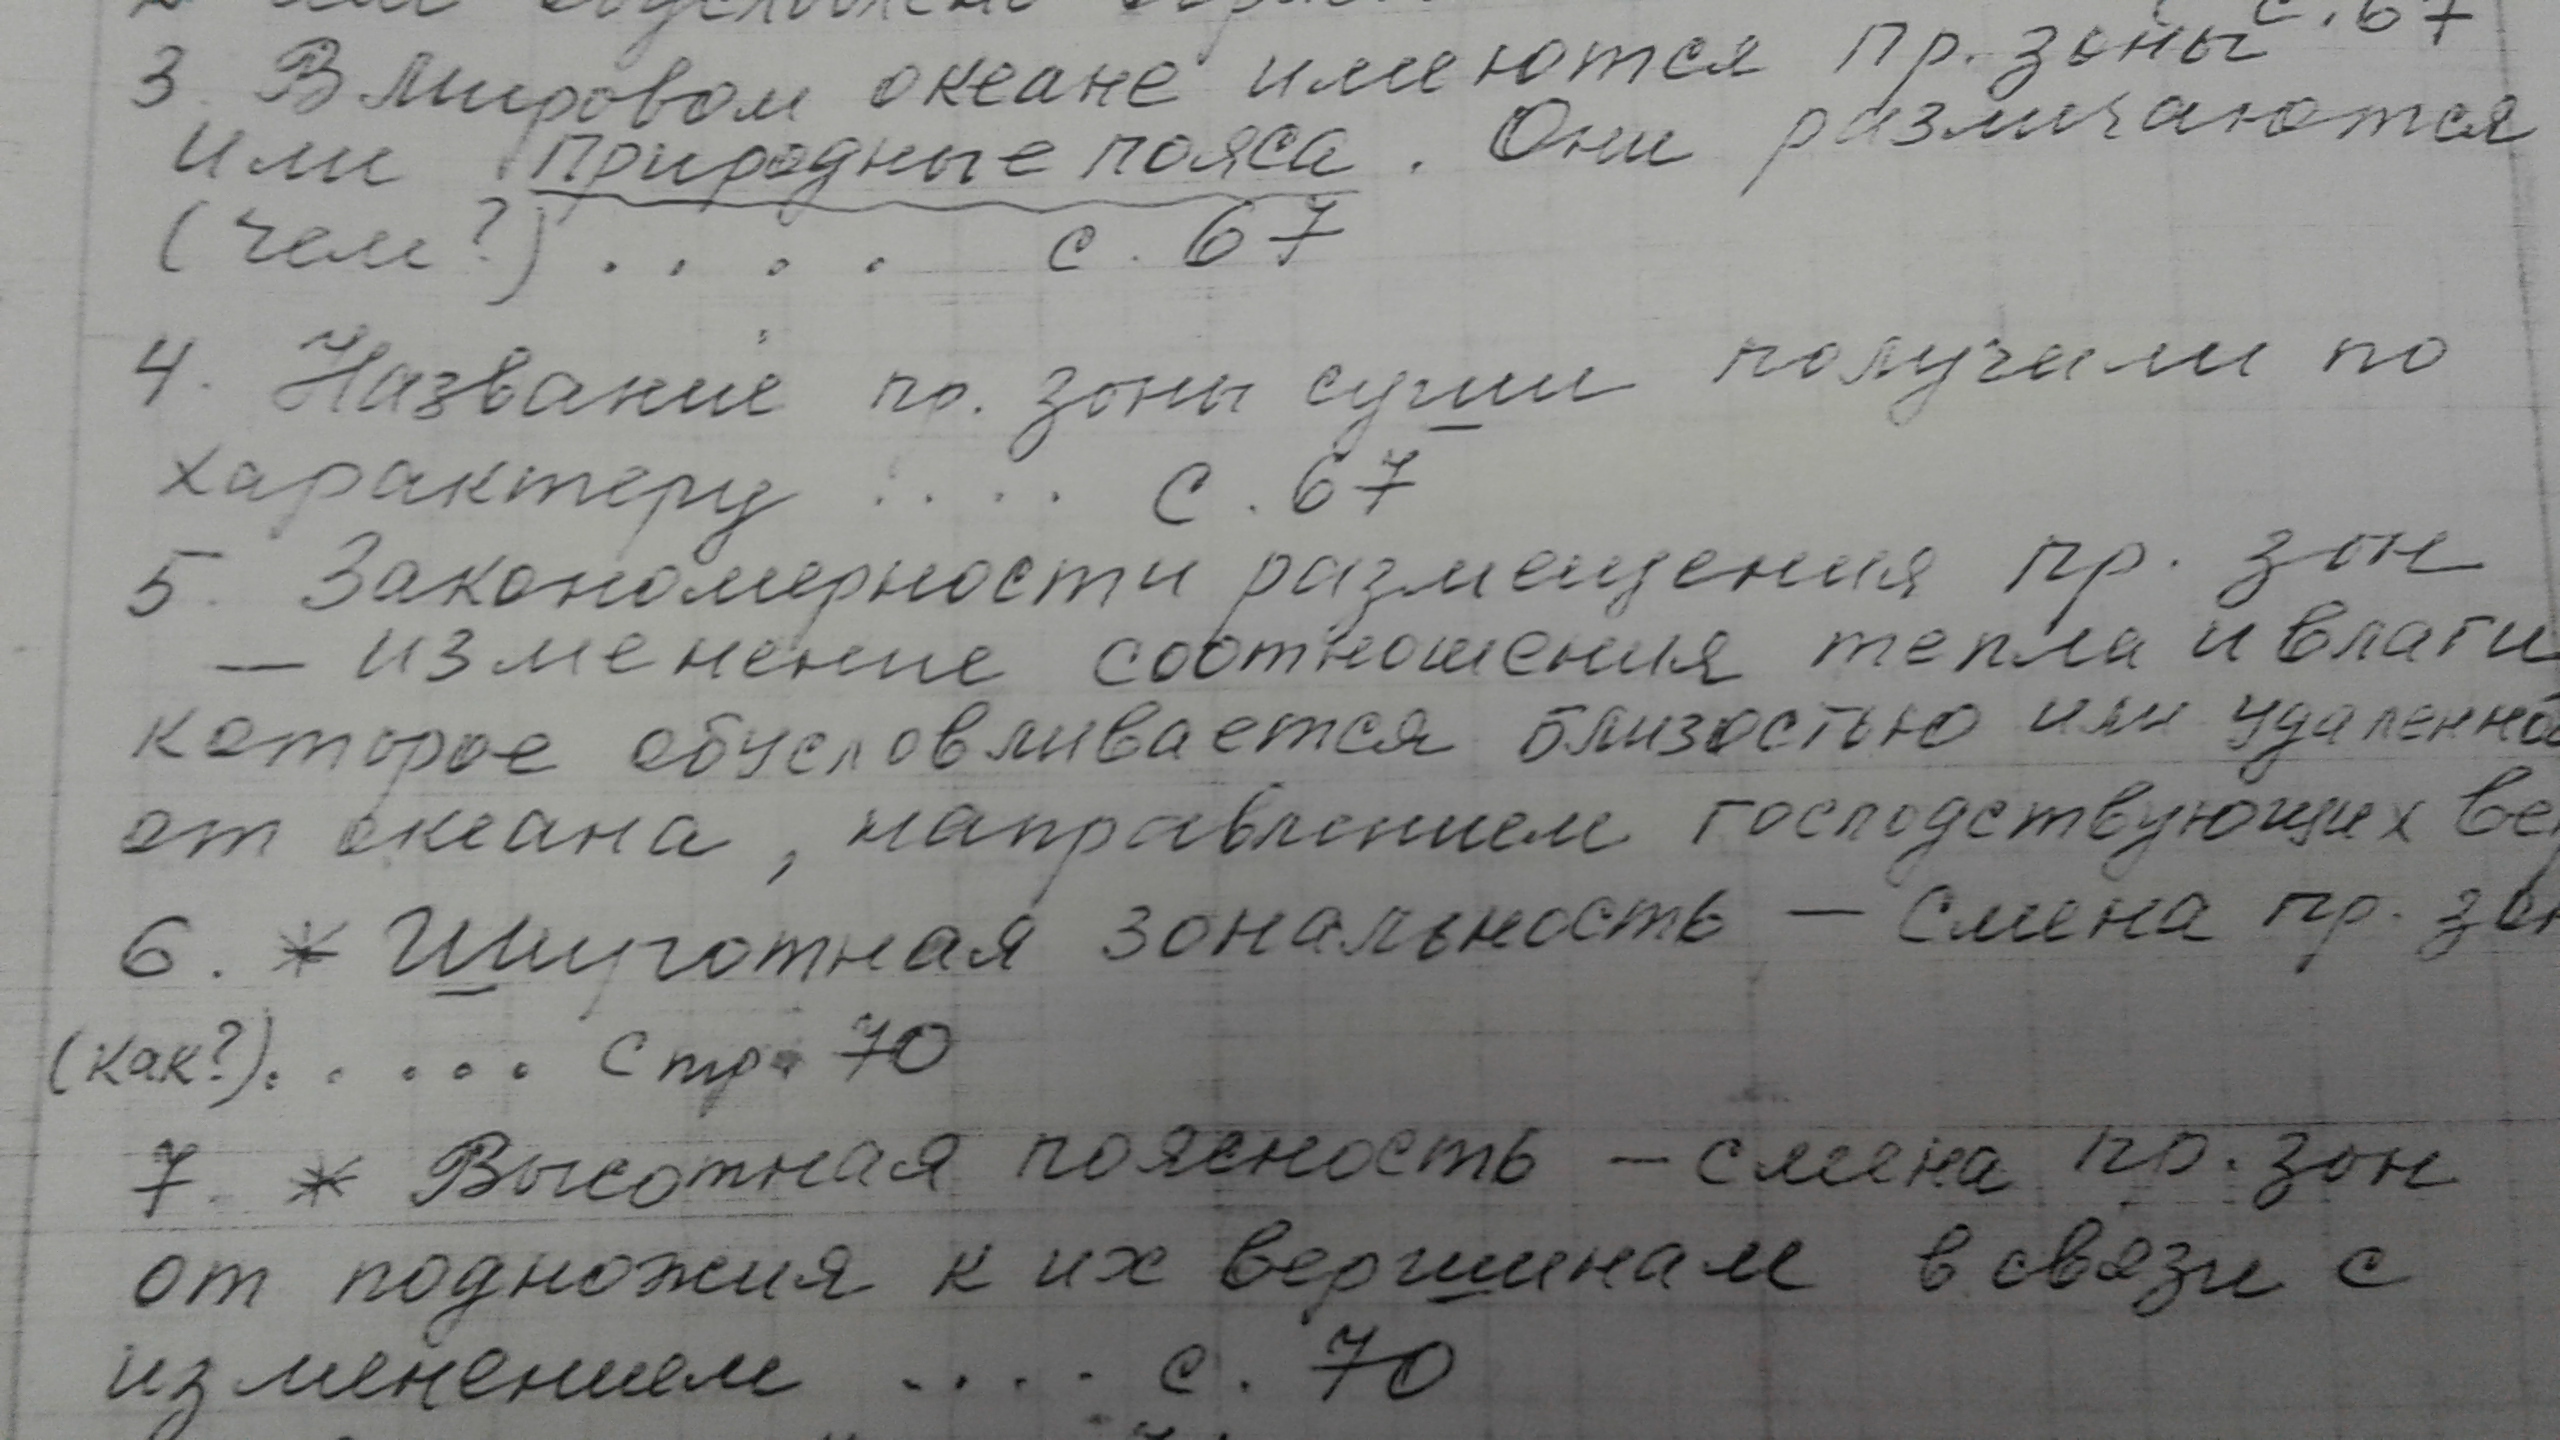 с. 67
3. В Мировом океане имеются пр. зоны
или природные пояса. Они различаются
(чем?) . . . . с. 67
4. Название пр. зоны суши получили по
характеру . . . . с. 67
5. Закономерности размещения пр. зон
— изменение соотношения тепла и влаги
которое обусловливается близостью или удаленно
от океана, направлением господствующих ве
6. * Широтная зональность — смена пр. зон
(как?). . . . . . Стр. 70
7. * Высотная поясность — смена пр. зон
от подножия к их вершинам в связи с
изменением . . . . с. 70